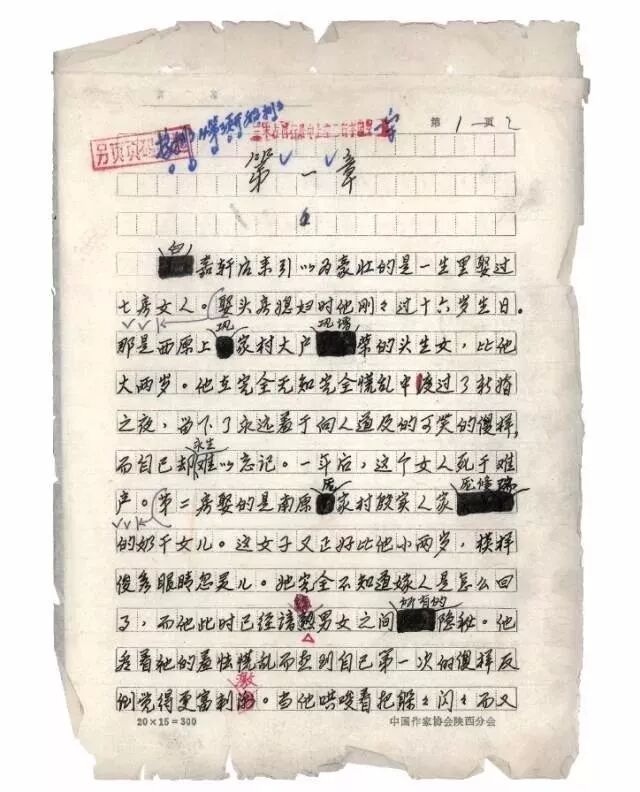 第 1 页
另页
第一章
白
嘉轩后来引以为豪壮的是一生里娶过
七房女人。娶头房媳妇时他刚々过十六岁生日。
巩 巩增
那是西原上家村大户荣的头生女，比他
大两岁。他在完全无知完全慌乱中度过了新婚
之夜，留下了永远羞于向人道及的可笑的傻样，
永生
而自己却难以忘记。一年后，这个女人死于难
庞 庞修瑞
产。第二房娶的是南原家村殷实人家
的奶干女儿。这女子又正好比他小两岁，模样
俊秀眼睛忽灵儿。她完全不知道嫁人是怎么回
所有的
了，而他此时已经谙熟男女之间隐秘。他
看着她的羞怯慌乱而想到自己第一次的傻样反
激
倒觉得更富刺。当他哄唆着把躲々闪々而又
20×15=300
中国作家协会陕西分会